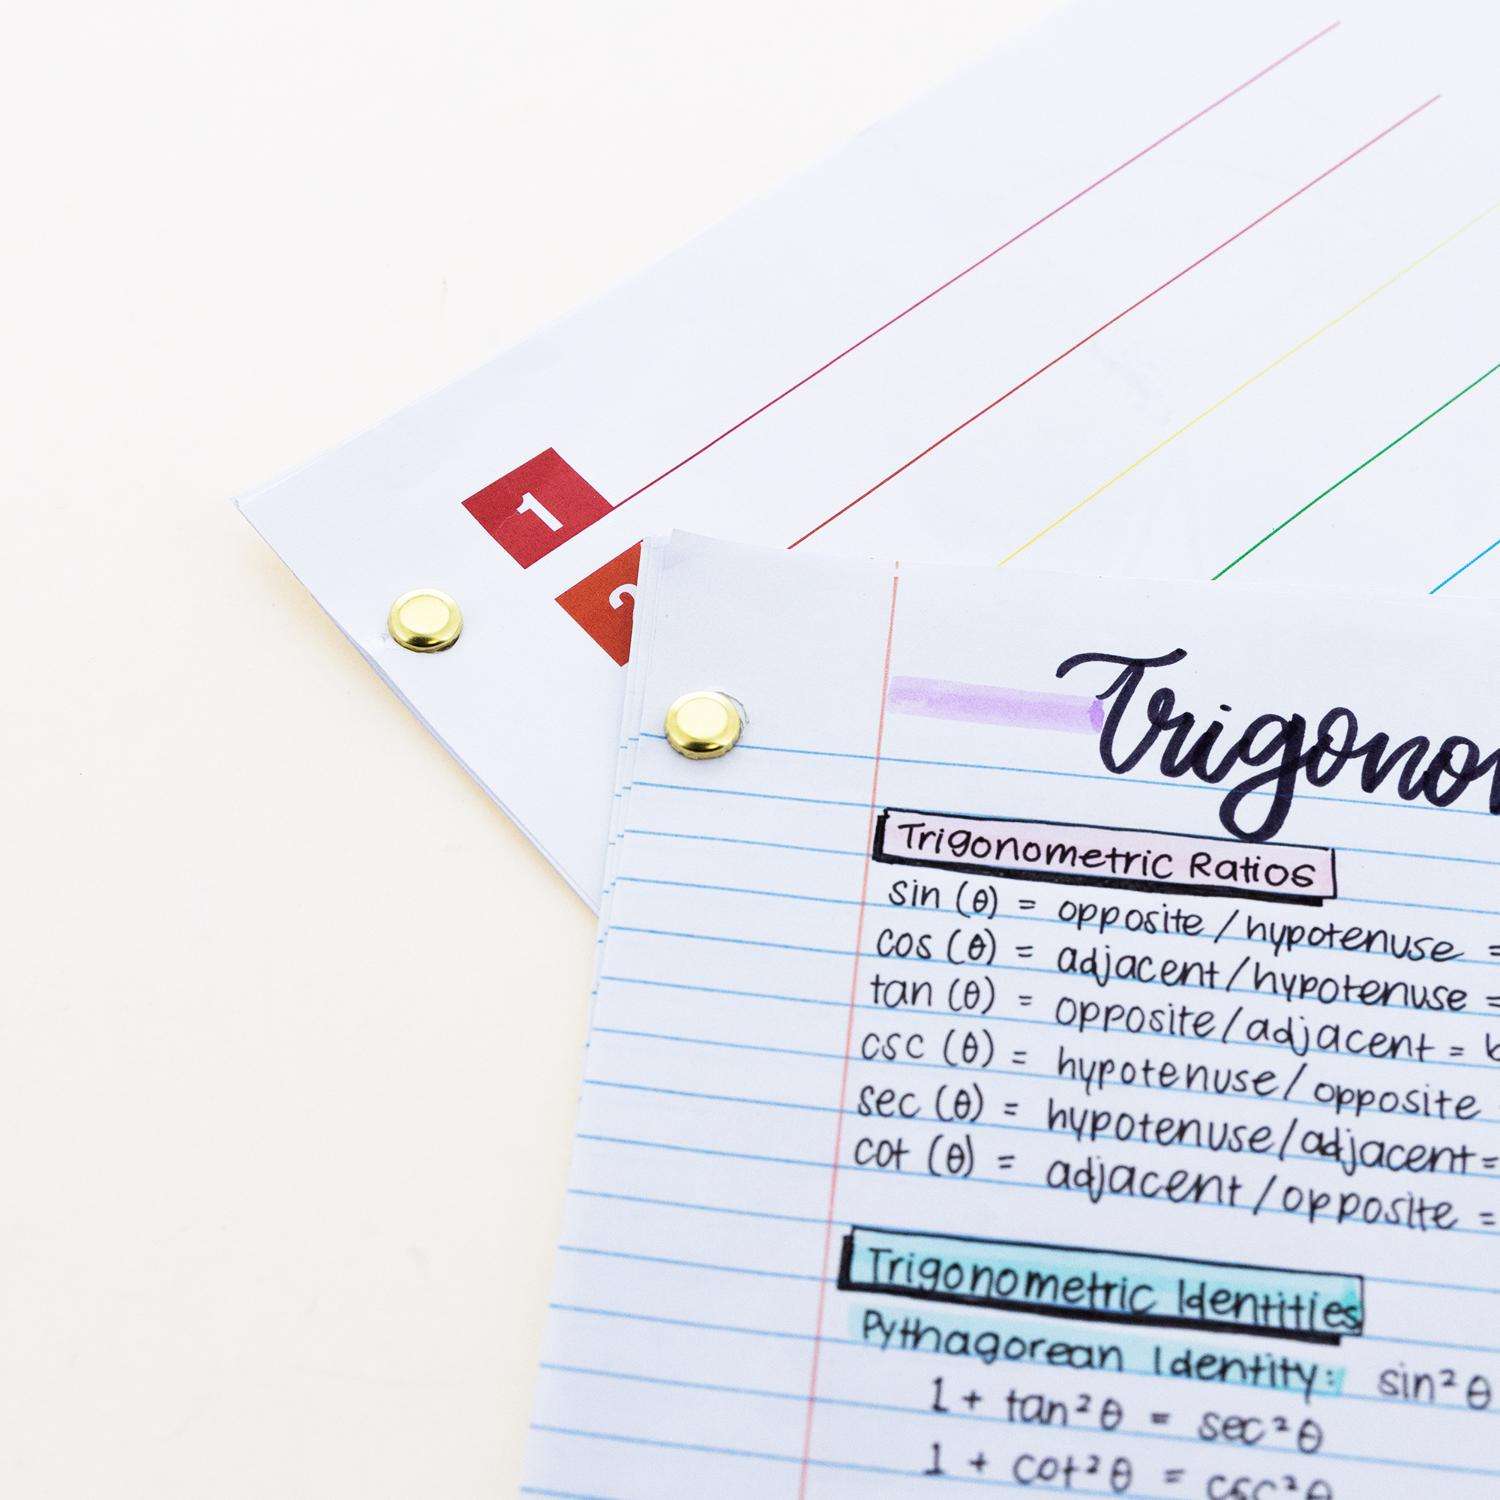 1
2
Trigono
Trigonometric Ratios
sin (θ) = opposite/hypotenuse =
cos (θ) = adjacent/hypotenuse =
tan (θ) = opposite/adjacent =
csc (θ) = hypotenuse/opposite
sec (θ) = hypotenuse/adjacent =
cot (θ) = adjacent/opposite =
Trigonometric Identities
Pythagorean Identity: sin²θ
1 + tan²θ = sec²θ
1 + cot²θ = csc²θ